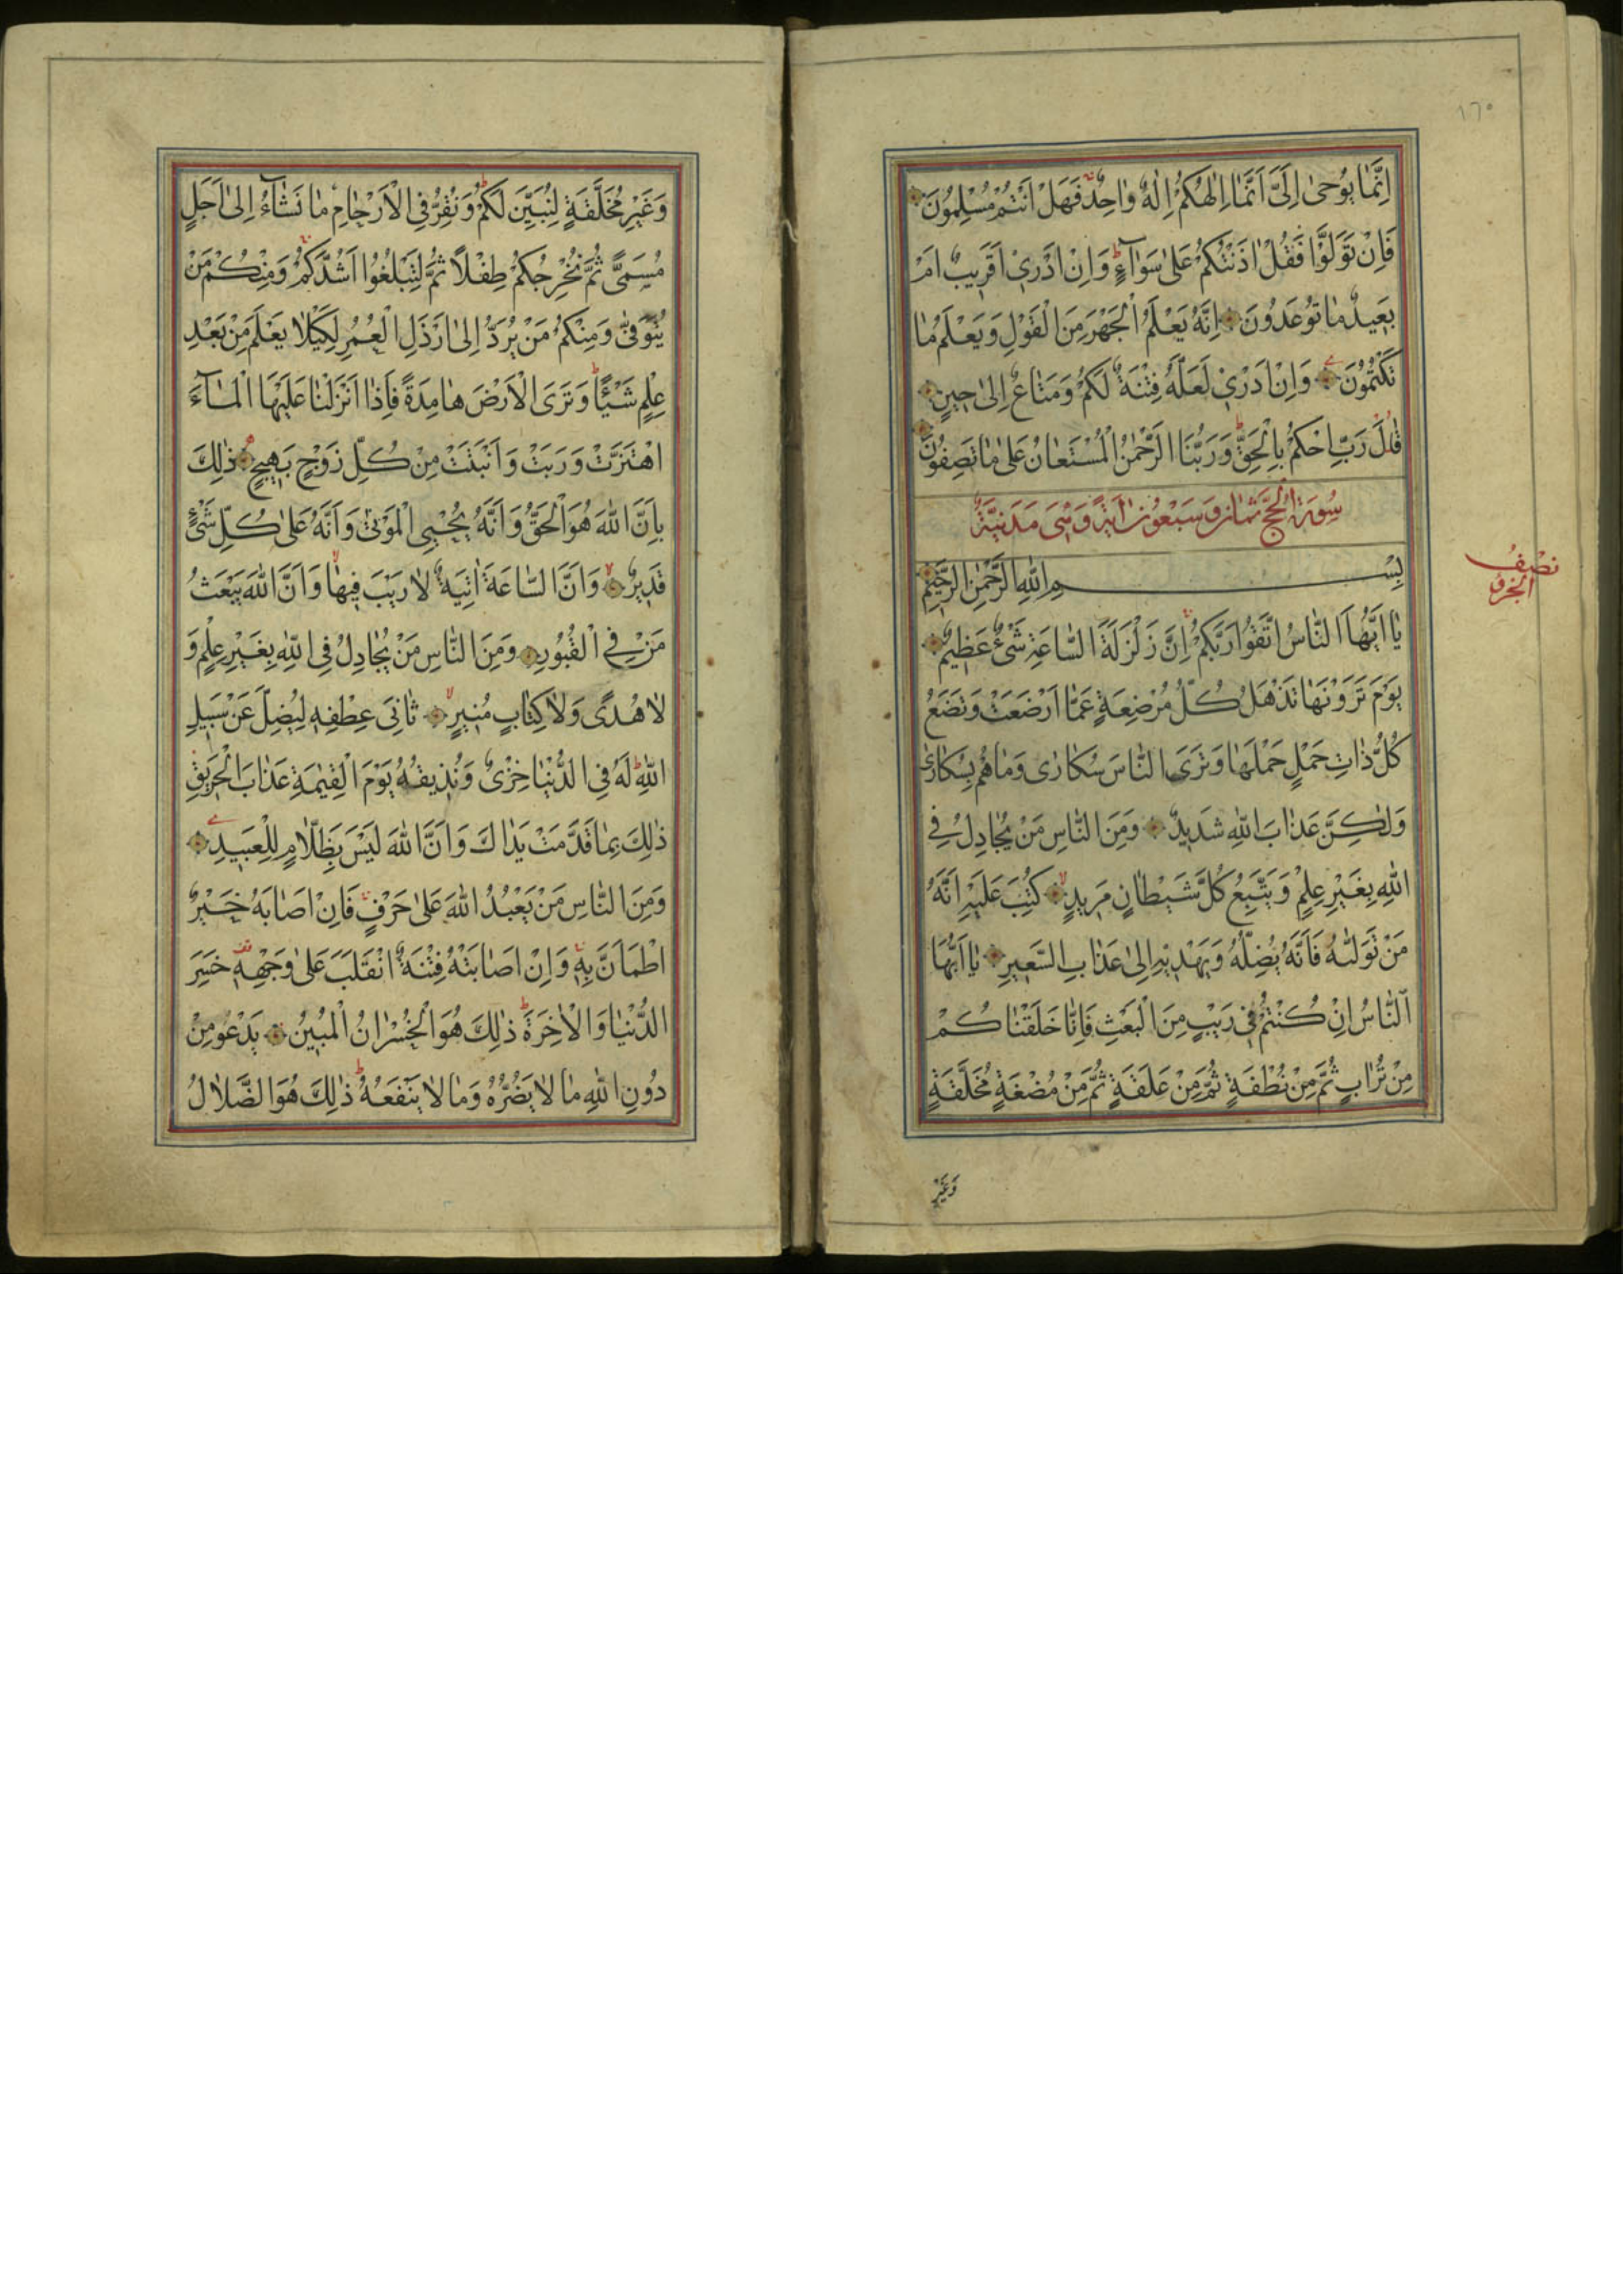 ١٦٠
اِنَّمَا يُوحٰى اِلَىَّ اَنَّمَا اِلٰهُكُمْ اِلٰهٌ وَاحِدٌ فَهَلْ اَنْتُمْ مُسْلِمُونَ
فَاِنْ تَوَلَّوْا فَقُلْ اٰذَنْتُكُمْ عَلٰى سَوَآءٍ وَاِنْ اَدْرِىٓ اَقَرِيبٌ اَمْ
بَعِيدٌ مَا تُوعَدُونَ اِنَّهُ يَعْلَمُ الْجَهْرَ مِنَ الْقَوْلِ وَيَعْلَمُ مَا
تَكْتُمُونَ وَاِنْ اَدْرِىْ لَعَلَّهُ فِتْنَةٌ لَكُمْ وَمَتَاعٌ اِلٰى حِينٍ
قَالَ رَبِّ احْكُمْ بِالْحَقِّ وَرَبُّنَا الرَّحْمٰنُ الْمُسْتَعَانُ عَلٰى مَا تَصِفُونَ
سُورَةُ الْحَجِّ ثَمَانٍ وَسَبْعُونَ اٰيَةً وَهِىَ مَدَنِيَّةٌ
نصف الحزب
بِسْمِ اللهِ الرَّحْمٰنِ الرَّحِيمِ
يَا اَيُّهَا النَّاسُ اتَّقُوا رَبَّكُمْ اِنَّ زَلْزَلَةَ السَّاعَةِ شَىْءٌ عَظِيمٌ
يَوْمَ تَرَوْنَهَا تَذْهَلُ كُلُّ مُرْضِعَةٍ عَمَّا اَرْضَعَتْ وَتَضَعُ
كُلُّ ذَاتِ حَمْلٍ حَمْلَهَا وَتَرَى النَّاسَ سُكَارٰى وَمَا هُمْ بِسُكَارٰى
وَلٰكِنَّ عَذَابَ اللهِ شَدِيدٌ وَمِنَ النَّاسِ مَنْ يُجَادِلُ فِى
اللهِ بِغَيْرِ عِلْمٍ وَيَتَّبِعُ كُلَّ شَيْطَانٍ مَرِيدٍ كُتِبَ عَلَيْهِ اَنَّهُ
مَنْ تَوَلَّاهُ فَاَنَّهُ يُضِلُّهُ وَيَهْدِيهِ اِلٰى عَذَابِ السَّعِيرِ يَا اَيُّهَا
النَّاسُ اِنْ كُنْتُمْ فِى رَيْبٍ مِنَ الْبَعْثِ فَاِنَّا خَلَقْنَاكُمْ
مِنْ تُرَابٍ ثُمَّ مِنْ نُطْفَةٍ ثُمَّ مِنْ عَلَقَةٍ ثُمَّ مِنْ مُضْغَةٍ مُخَلَّقَةٍ
وَغَيْرِ
وَغَيْرِ مُخَلَّقَةٍ لِنُبَيِّنَ لَكُمْ وَنُقِرُّ فِى الْاَرْحَامِ مَا نَشَآءُ اِلٰى اَجَلٍ
مُسَمًّى ثُمَّ نُخْرِجُكُمْ طِفْلًا ثُمَّ لِتَبْلُغُوا اَشُدَّكُمْ وَمِنْكُمْ مَنْ
يُتَوَفّٰى وَمِنْكُمْ مَنْ يُرَدُّ اِلٰى اَرْذَلِ الْعُمُرِ لِكَيْلَا يَعْلَمَ مِنْ بَعْدِ
عِلْمٍ شَيْئًا وَتَرَى الْاَرْضَ هَامِدَةً فَاِذَا اَنْزَلْنَا عَلَيْهَا الْمَآءَ
اهْتَزَّتْ وَرَبَتْ وَاَنْبَتَتْ مِنْ كُلِّ زَوْجٍ بَهِيجٍ ذٰلِكَ
بِاَنَّ اللهَ هُوَ الْحَقُّ وَاَنَّهُ يُحْيِى الْمَوْتٰى وَاَنَّهُ عَلٰى كُلِّ شَىْءٍ
قَدِيرٌ وَاَنَّ السَّاعَةَ اٰتِيَةٌ لَا رَيْبَ فِيهَا وَاَنَّ اللهَ يَبْعَثُ
مَنْ فِى الْقُبُورِ وَمِنَ النَّاسِ مَنْ يُجَادِلُ فِى اللهِ بِغَيْرِ عِلْمٍ وَ
لَا هُدًى وَلَا كِتَابٍ مُنِيرٍ ثَانِىَ عِطْفِهِ لِيُضِلَّ عَنْ سَبِيلِ
اللهِ لَهُ فِى الدُّنْيَا خِزْىٌ وَنُذِيقُهُ يَوْمَ الْقِيٰمَةِ عَذَابَ الْحَرِيقِ
ذٰلِكَ بِمَا قَدَّمَتْ يَدَاكَ وَاَنَّ اللهَ لَيْسَ بِظَلَّامٍ لِلْعَبِيدِ
وَمِنَ النَّاسِ مَنْ يَعْبُدُ اللهَ عَلٰى حَرْفٍ فَاِنْ اَصَابَهُ خَيْرٌ
اطْمَاَنَّ بِهِ وَاِنْ اَصَابَتْهُ فِتْنَةٌ انْقَلَبَ عَلٰى وَجْهِهِ خَسِرَ
الدُّنْيَا وَالْاٰخِرَةَ ذٰلِكَ هُوَ الْخُسْرَانُ الْمُبِينُ يَدْعُو مِنْ
دُونِ اللهِ مَا لَا يَضُرُّهُ وَمَا لَا يَنْفَعُهُ ذٰلِكَ هُوَ الضَّلَالُ